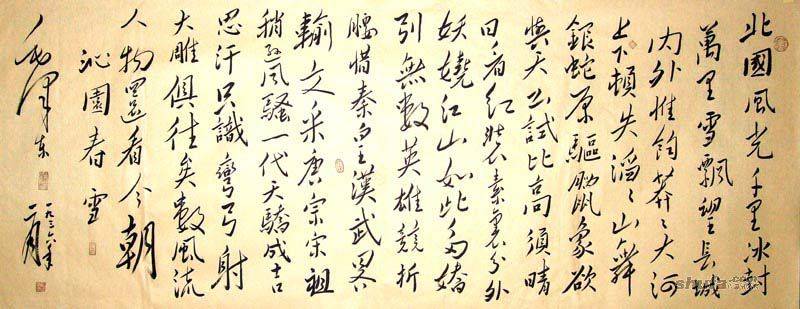 北國風光千里冰封
萬里雪飄望長城
内外惟餘莽々大河
上下頓失滔々山舞
銀蛇原驅臘象欲
與天公試比高須晴
日看紅裝素裹分外
妖嬈江山如此多嬌
引無數英雄競折
腰惜秦皇漢武略
輸文采唐宗宋祖
稍遜風騷一代天驕成吉
思汗只識彎弓射
大雕俱往矣數風流
人物還看今朝
沁園春雪
毛澤东
一九三六年
二月